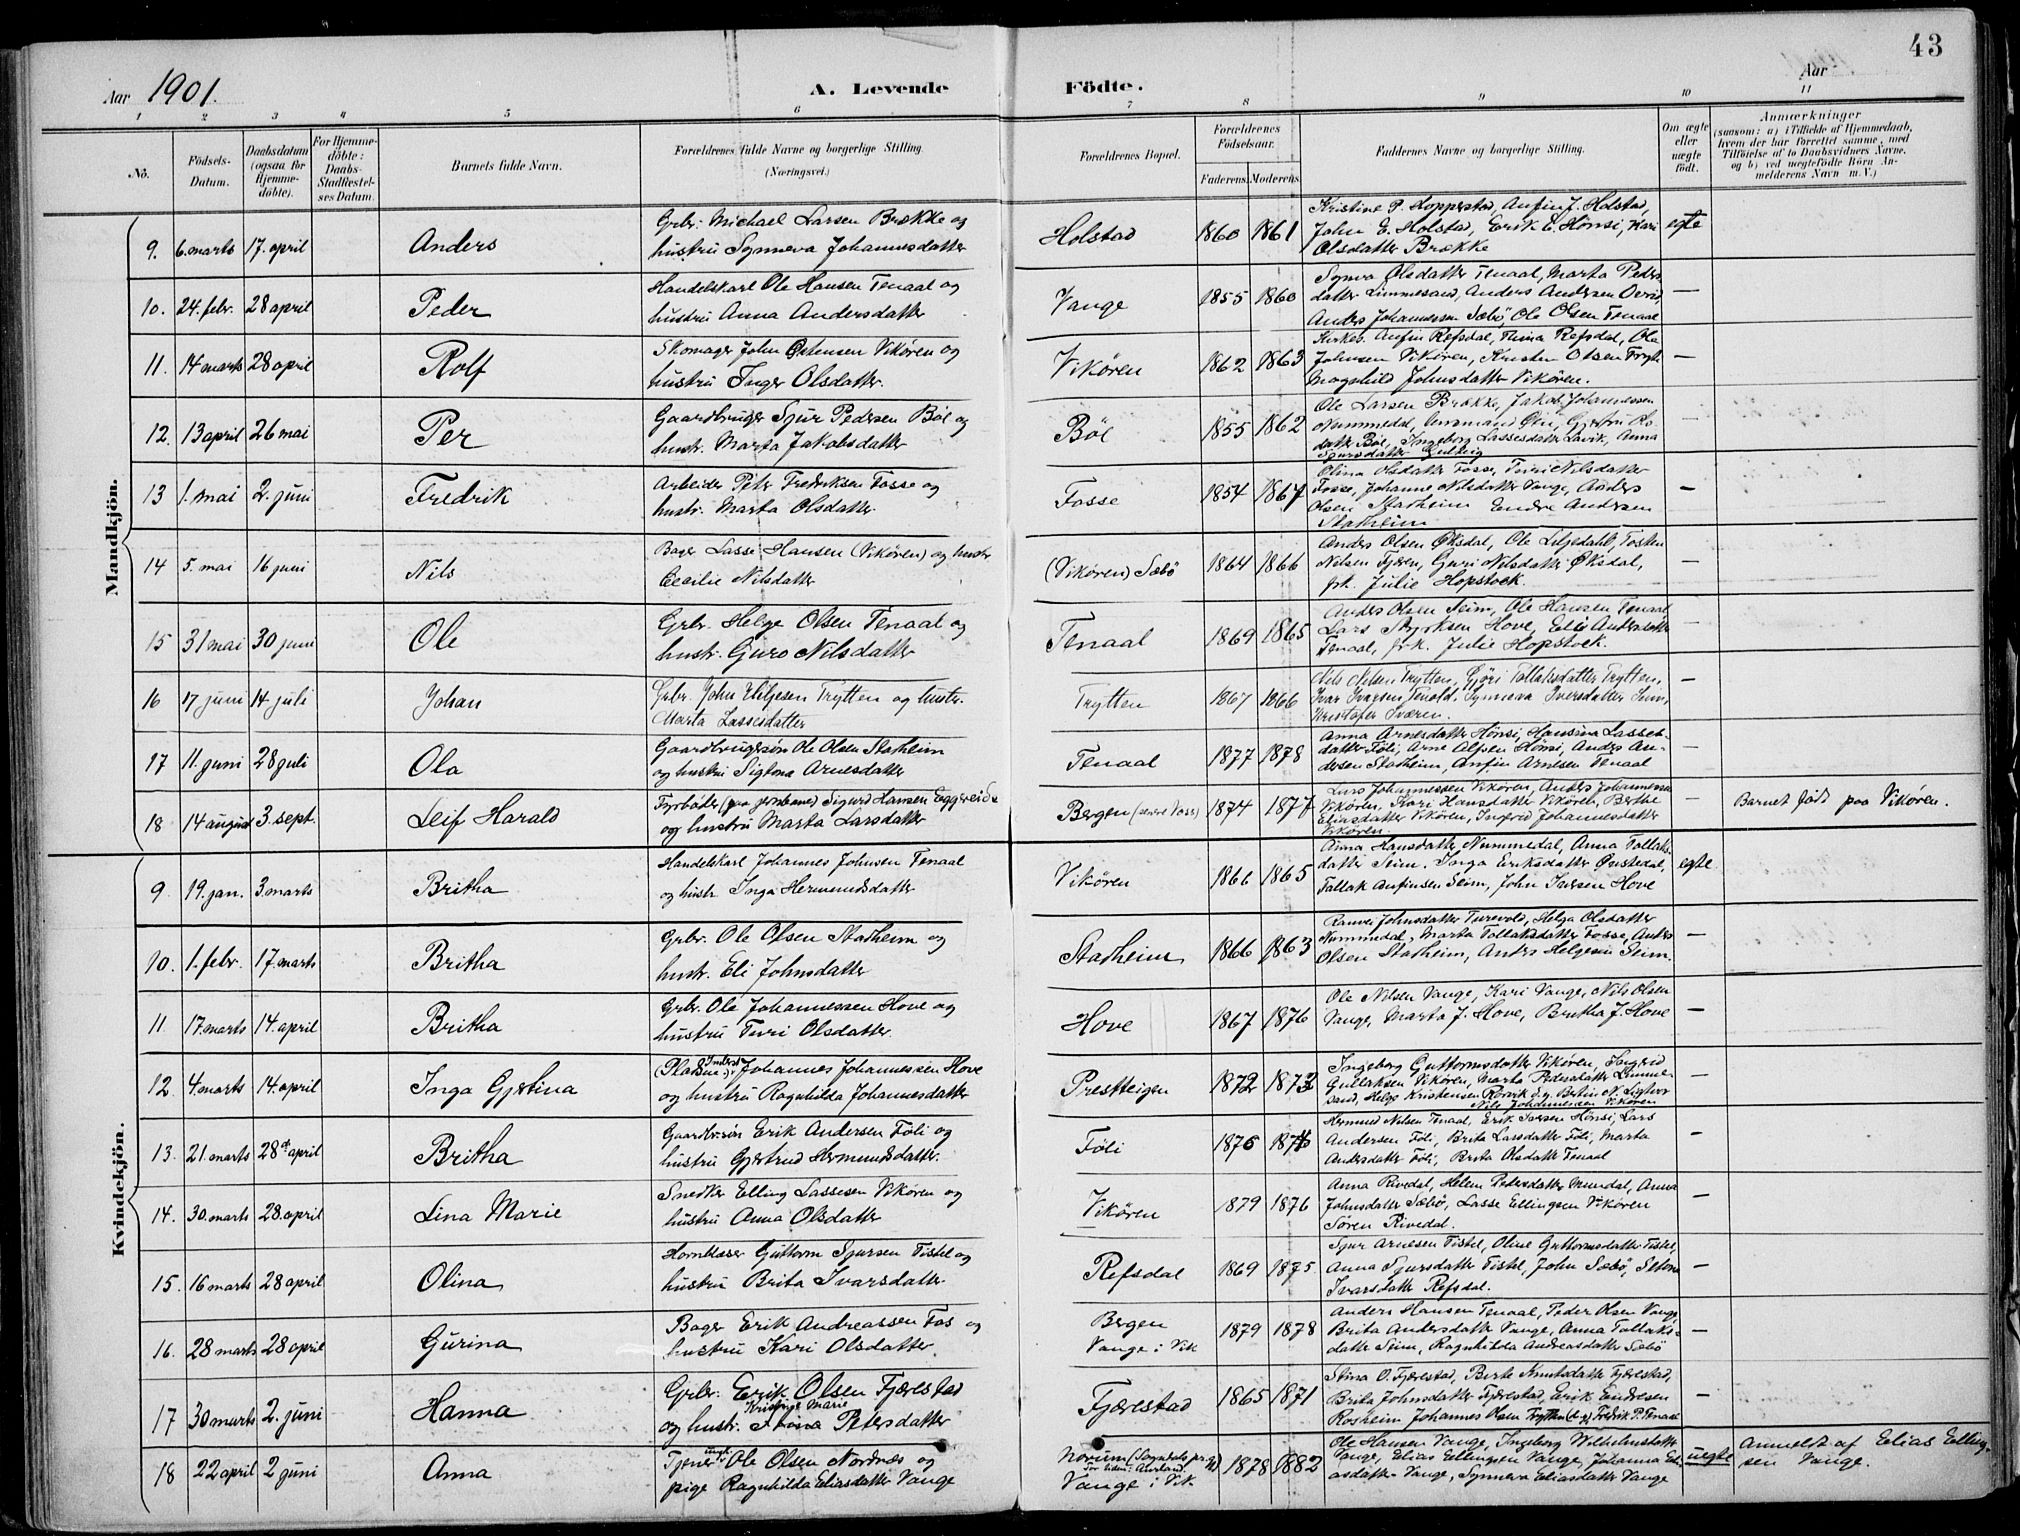 43
Aar 1901.
A. Levende Födte.
Aar
1 2 3 4 5 6 7 8 9 10 11
No.
Födsels-Datum.
Daabsdatum (ogsaa for Hjemme-döbte).
For Hjemme-döbte: Daabs-Stadfestel-ses Datum.
Barnets fulde Navn.
Forældrenes fulde Navne og borgerlige Stilling (Næringsvei.)
Forældrenes Bopæl.
Forældrenes Födselsaar.
Faderens. Moderens.
Faddernes Navne og borgerlige Stilling.
Om ægte eller uægte födt.
Anmærkninger
(saasom: a) i Tilfælde af Hjemmedaab,
hvem der har forrettet samme, med
Tilföielse af to Daabsvidners Navne,
og b) ved uægtefödte Börn An-
melderens Navn m. V.)
Mandkjön.
9. 6. marts 17. april Anders Grbr. Michael Larsen Brække og
hustru Synneva Johannesdatter
Holstad 1860 1861 Kristine P. Hopperstad, Anfin J. Holstad,
John E. Holstad, Erik E. Hönsi, Kari
Olsdatter Brække
egte
10. 24. febr. 28 april Peder Handelskarl Ole Hansen Tenaal og
hustru Anna Andersdatter
Vange 1855 1860 Synva Olsdatter Tenaal, Marta Peders
datter Limmesand, Anders Andersen
Anders Johannessen Sæbö, Ole Olsen Tenaal
—
11. 14 marts 28 april Rolf Skomager John Østensen Vikören og
hustru Inger Olsdatter.
Vikören 1862 1863 Kirkes. Anfin Refsdal, Refsdal, Ole
Johnsen Vikören, Olsen
Magnhild Johnsdatter Vikören.
—
12. 13 april 26 mai Per Gaardbruger Sjur Pedersen Böe og
hustr. Marta Jakobsdatter
Böe 1855 1862 Ole Larsen Brække, Jakob Johannessen
Nummedal, Gjertru
datter Böe, Ingeborg Lassesdatter Lavik, Anna
Sjursdatter
—
13 1. mai 2. juni Fredrik Arbeider Peter Frederiksen Fosse og
hustr. Marta Olsdatter
Fosse 1854 1867 Olina Olsdatter Fosse, Turi Nilsdatter
Fosse, Johanne Nilsdatter Vange, Anders
Olsen Stadheim Endre Andersen
Stadheim
—
14 5. mai 16 juni Nils Bager Lasse Hansen (Vikören) og hustr
Cecilie Nilsdatter
(Vikören) Sæbö 1864 1866 Anders Olsen Øksdal, Ole Liljedahl, Tosten
Nilsen Fjæren, Guri Nilsdatter Øksdal,
frk. Julie Hopstock.
—
15 31 mai 30 juni Ole Grbr. Helge Olsen Tenaal og
hustr. Guro Nilsdatter
Tenaal 1869 1865 Anders Olsen Seim, Ole Hansen Tenaal
Lars Styrksen Hove, Eli Andersdatter
Tenaal, frk. Julie Hopstock.
—
16 17 juni 14 juli Johan Grbr. John Trytten og hustr.
Marta Lassesdatter
Trytten 1867 1866 Nils Nilsen Trytten, Gjöri Tollaksdatter Trytten,
Ivar Ivarsen Tenold, Synneva Iversdatter Seim,
Kristofer Sværen.
—
17 11. juni 28 juli Ola Gaardbrugersön Ole Olsen Stadheim
og hustru Arnesdatter
Tenaal 1877 1878 Anna Arnesdatter Hönsi, Hansina Lasses-
datter Föli, Arne Hönsi, Anders An-
dersen Stadheim, Anfin Arnesen Tenaal
—
18 14 august 3. sept. Leif Harald Fyrböder (paa jernbane) Sigurd Hansen Eggereide
og hustru Marta Larsdatter
Bergen (senere Voss) 1874 1877 Lars Johannessen Vikören, Anders Johannessen
Vikören, Kari Hansdatter Vikören, Berthe
Eliasdatter Vikören, Ingrid Johannesdatter
Vikören.
—
Barnet född paa Vikören.
Kvindekjön.
9 19. jan. 3 marts Britha Handelskarl Johannes Johnsen Tenaal
og hustr Inga Hermundsdatter
Vikören 1866 1865 Anna Hansdatter Nummedal, Anna Tollaks-
datter Seim, Inga Eriksdatter
Tollak Anfinsen Seim, John Iversen Hove
egte
10. 1. febr. 17. marts Britha Grbr. Ole Olsen Stadheim og
hustr. Eli Johnsdatter
Stadheim 1866 1863 Ranvei Johnsdatter Turvold, Helga Olsdatter
Nummedal, Marta Tollaksdatter Fosse, Anders
Olsen Stadheim, Anders Helgesen Seim.
—
11. 17. marts 14. april Britha Grbr. Ole Johannessen Hove og
hustru Turi Olsdatter
Hove 1867 1876 Ole Nilsen Vange, Kari Vange, Nils Olsen
Vange, Marta J. Hove, Britha J. Hove
—
12. 4. marts 14. april Inga Gjertina Johannes Johannessen Hove
og hustru Ragnhilda Johannesdatter
Prestteigen 1872 1873 Ingeborg Guttormsdatter Vikören, Ingrid
Gullaksen Vikören, Marta Pedersdatter Limme-
sand, Helge Kristensen
Nils Johannessen Vikören
—
13. 21. marts 28de april Britha Gaardbr.sön Erik Andersen Föli og
hustru Gjertrud Hermundsdatter.
Föli 1876 Hermund Nilsen Tenaal, Erik Iversen Hönsi, Lars
Andersen Föli, Brita Larsdatter Föli, Marta
Andersdatter Föli, Brita Olsdatter Tenaal
—
14. 30. marts 28. april Lina Marie Snedker Elling Lassesen Vikören og
hustru Anna Olsdatter
Vikören 1879 1876 Anna Rivedal, Helene Pedersdatter Mundal, Anna
Johnsdatter Sæbö, Lasse Ellingsen Vikören
Sören Rivedal.
—
15. 16 marts 28 april Olina Hornblaser Guttorm Sjursen Tistel og
hustru Brita Ivarsdatter
Refsdal 1869 1875 Sjur Arnesen Tistel, Oline Guttormsdatter Tistel,
Anna Sjursdatter Tistel, John Sæbö,
Ivarsdatter Refsdal.
—
16. 28 marts 28 april Gurina Bager Erik Andreassen Fos og
hustru Kari Olsdatter.
Bergen
Vange i Vik
1879 1878 Anders Hansen Tenaal, Peder Olsen Vange,
Brita Andersdatter Vange, Anna Tollaks-
datter Seim, Ragnhilda Andreasdatter Sæbö
—
17 30 marts 2. juni Hanna Grbr. Erik Olsen Fjærestad
Kristine Marie
og hustr. Petersdatter
Fjærestad 1865 1871 Stina O. Fjærestad, Berte Knutsdatter Fjærestad,
Brita Johnsdatter Fjærestad, Erik Endresen
Rosheim Johannes Olsen Trytten Fredrik P. Tenaal
—
18 22 april 2 juni Anna Tjener ungk. Ole Olsen Nordnæs og
pige Ragnhilda Eliasdatter Vange
Norum (Sogndals prgj.)
for tiden: Aurland
Vange i Vik
1878 1882 Ole Hansen Vange, Ingeborg Wilhelmsdatter
Vange, Elias Ellingsen Vange, Johanna Eli-
asdatter Vange, Synneva Eliasdatter Vange
uegte
Anmeldt af Elias Elling-
sen Vange.